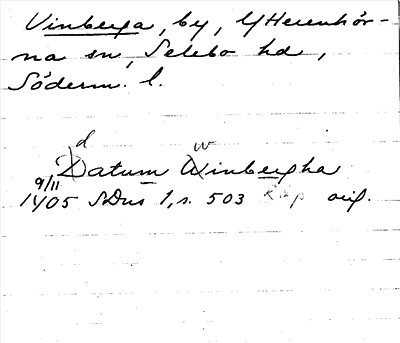 Vinberga, by, Ytterenhör-
na sn, Selebo hd,
Söderm. l.
d w
Datum Winbergha
9/11
1405 SDns 1, s. 503 orig.